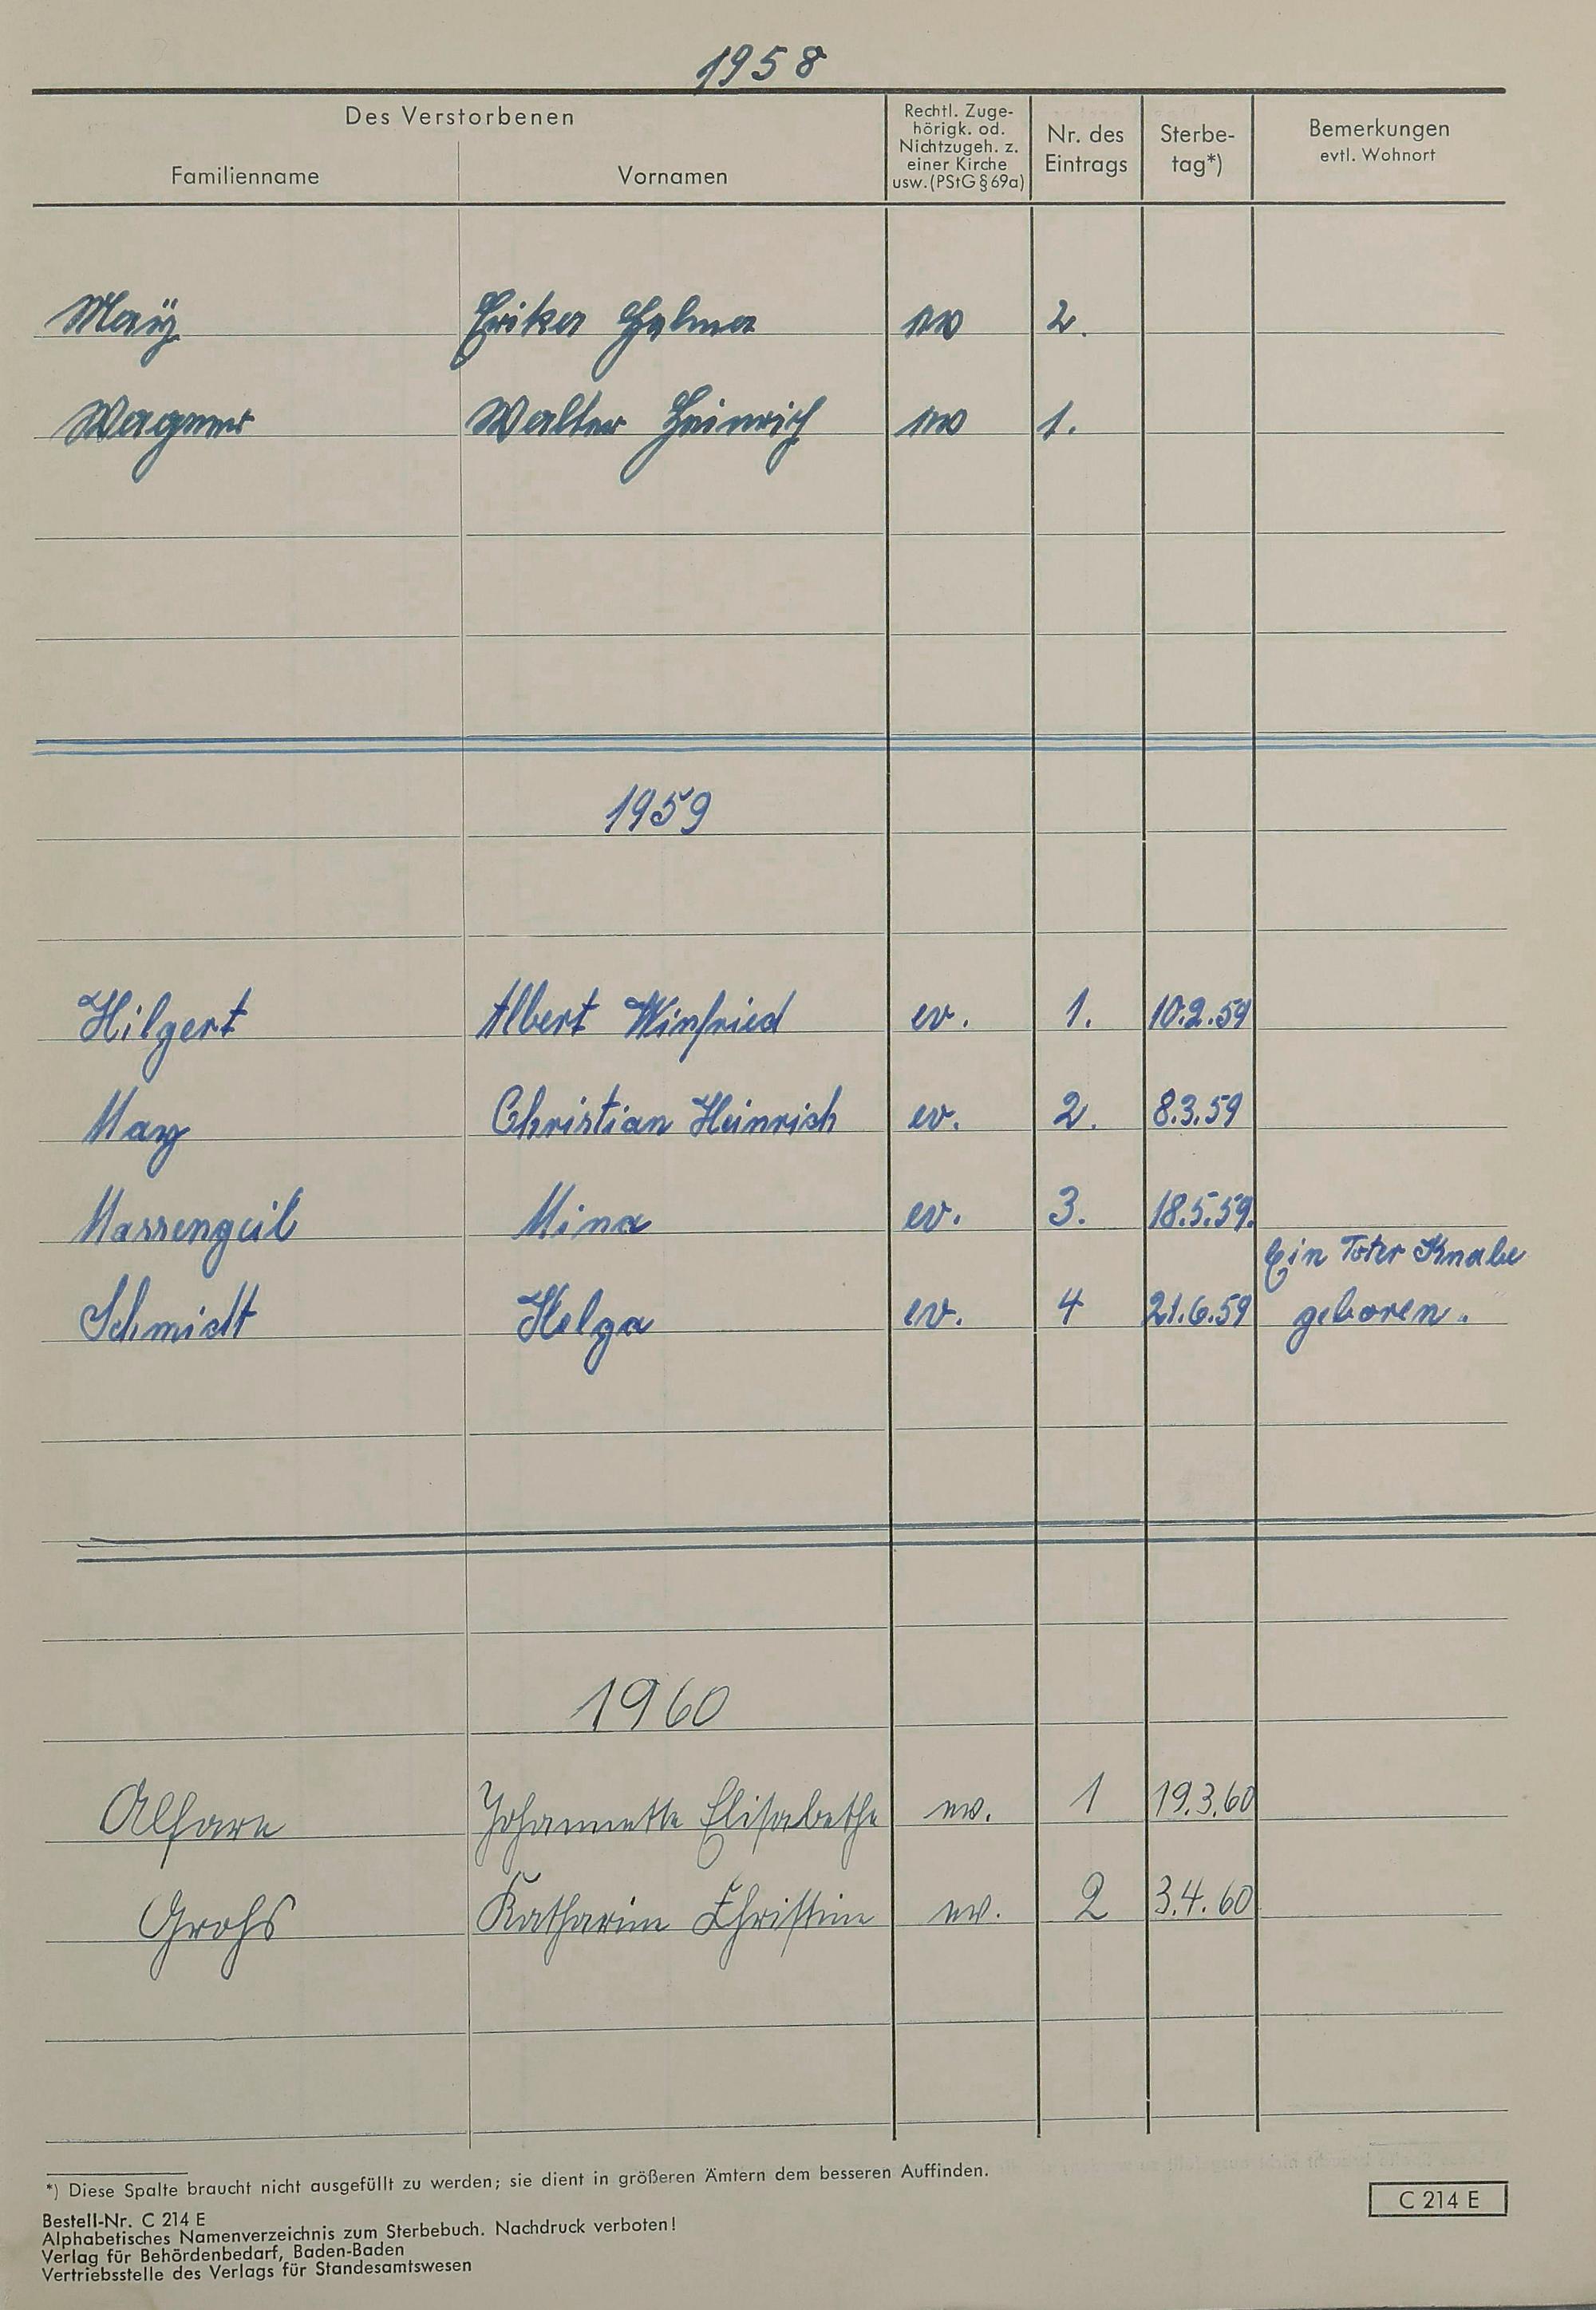 1958
Des Verstorbenen
Familienname Vornamen
Rechtl. Zuge-
hörigk. od.
Nichtzugeh. z.
einer Kirche
usw. (PStG § 69a)
Nr. des
Eintrags
Sterbe-
tag*)
Bemerkungen
evtl. Wohnort
Maÿ Erika Helma ev 2.
Wagner Walter Heinrich ev 1.
1959
Hilgert Albert Winfried ev. 1. 10.2.59
May Christian Heinrich ev. 2. 8.3.59
Massengeil Mina ev. 3. 18.5.59.
Ein Toter Knabe
Schmidt Helga ev. 4 21.6.59 geboren.
1960
Johannette Elisabethe ev. 1 19.3.60
Grohs Katharine Christine ev. 2 3.4.60
*) Diese Spalte braucht nicht ausgefüllt zu werden; sie dient in größeren Ämtern dem besseren Auffinden.
Bestell-Nr. C 214 E
Alphabetisches Namenverzeichnis zum Sterbebuch. Nachdruck verboten!
Verlag für Behördenbedarf, Baden-Baden
Vertriebsstelle des Verlags für Standesamtswesen
C 214 E